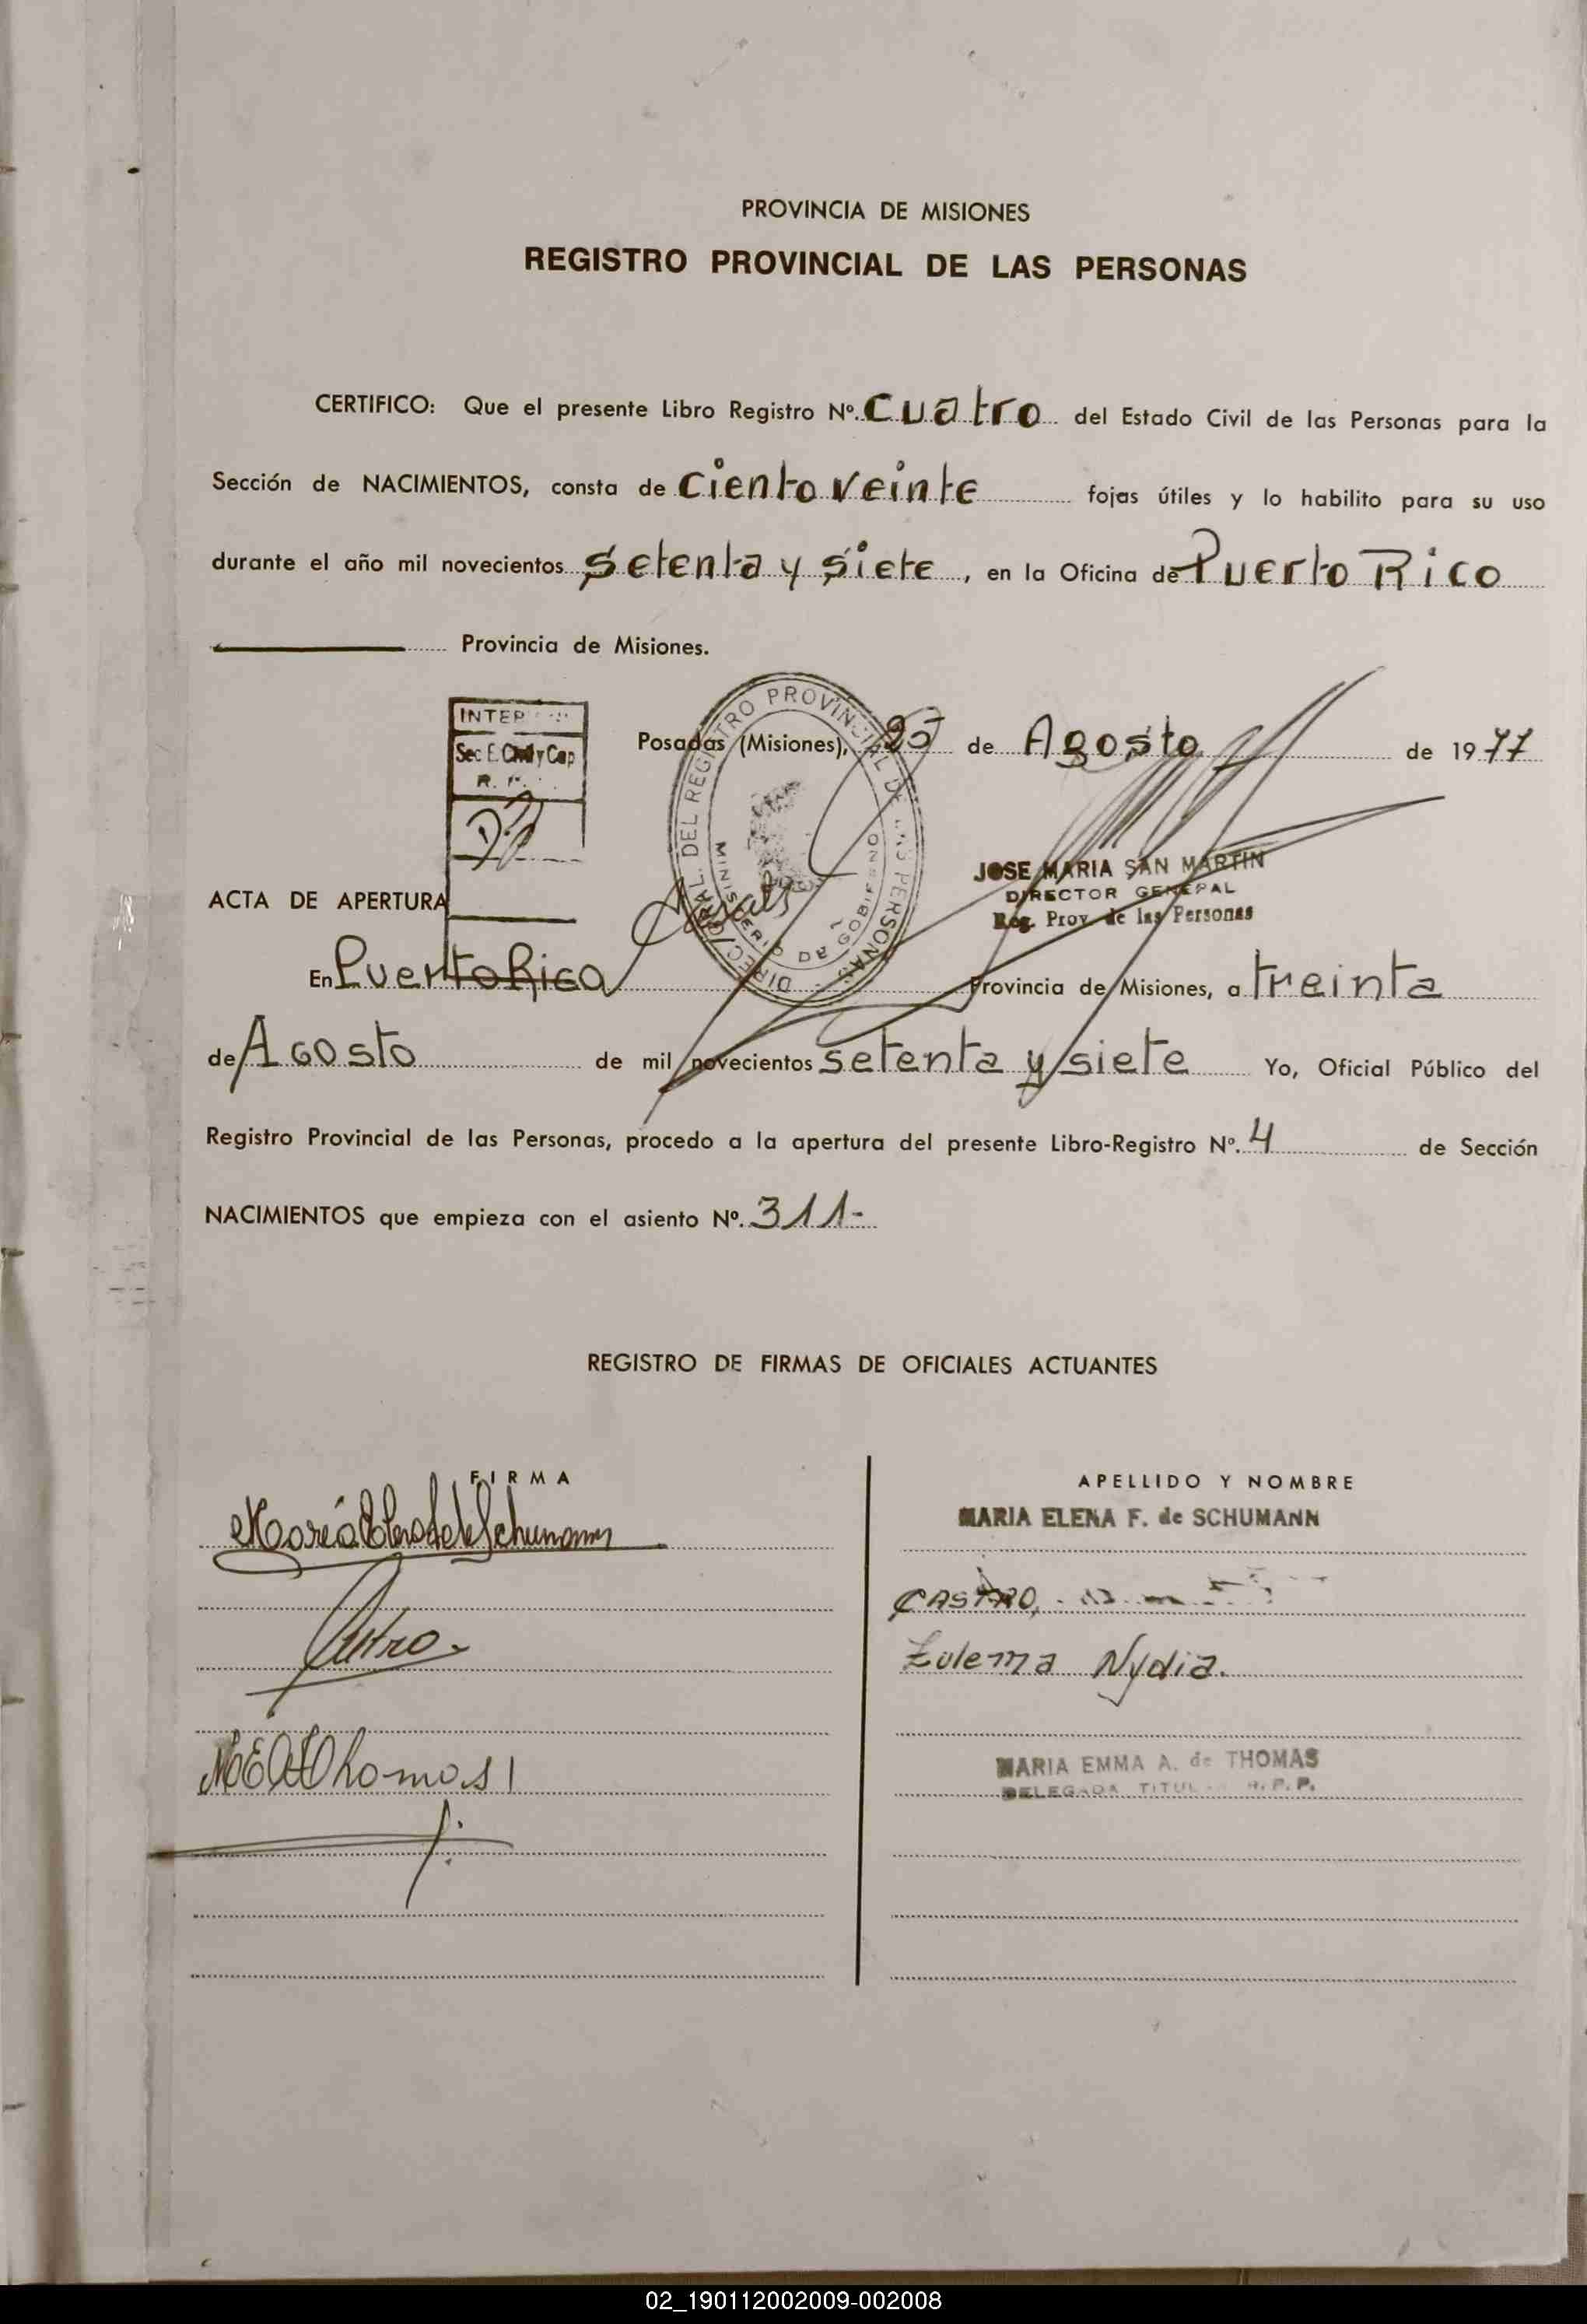 PROVINCIA DE MISIONES
REGISTRO PROVINCIAL DE LAS PERSONAS
CERTIFICO: Que el presente Libro Registro Nº. cuatro del Estado Civil de las Personas para la
Sección de NACIMIENTOS, consta de ciento veinte fojas útiles y lo habilito para su uso
durante el año mil novecientos setenta y siete, en la Oficina de Puerto Rico
Provincia de Misiones.
Sec E. Civil y Cap
Posadas (Misiones), 25 de Agosto de 1977
DIREC/GRAL. DEL REGISTRO PROVINCIAL DE LAS PERSONAS
MINISTERIO DE GOBIERNO
JOSE MARIA SAN MARTIN
DIRECTOR GENERAL
Reg. Prov. de las Personas
ACTA DE APERTURA
En Puerto Rico Provincia de Misiones, a treinta
de Agosto de mil novecientos setenta y siete Yo, Oficial Público del
Registro Provincial de las Personas, procedo a la apertura del presente Libro-Registro Nº. 4 de Sección
NACIMIENTOS que empieza con el asiento Nº. 311-
REGISTRO DE FIRMAS DE OFICIALES ACTUANTES
FIRMA
APELLIDO Y NOMBRE
MARIA ELENA F. de SCHUMANN
CASTRO,
Zulema Nydia.
MARIA EMMA A. de THOMAS
DELEGADA TITULAR R.P.P.
02_190112002009-002008